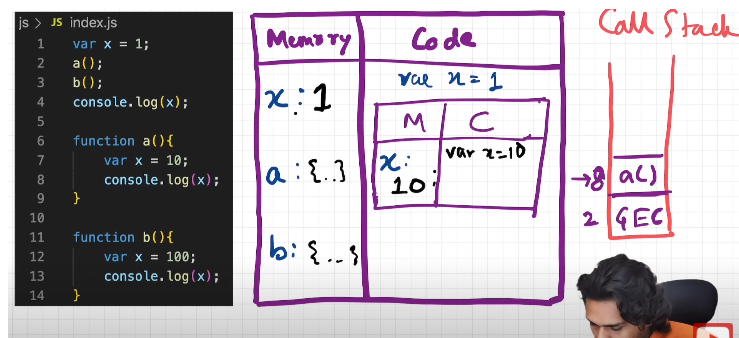 js > JS index.js
1 var x = 1;
2 a();
3 b();
4 console.log(x);
5
6 function a(){
7 var x = 10;
8 console.log(x);
9 }
10
11 function b(){
12 var x = 100;
13 console.log(x);
14 }
Memory
Code
x: 1
a: {..}
b: {...}
var x = 1
M
C
x:
10:
var x=10
Call Stack
→8 a()
2 GEC